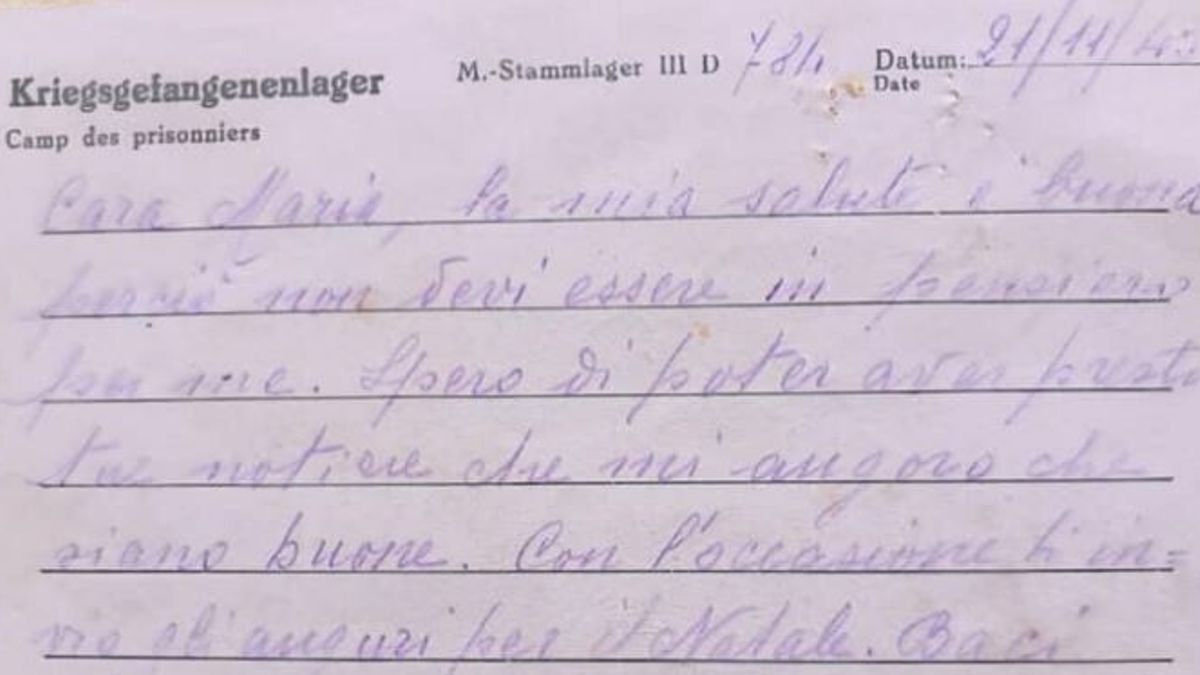 Kriegsgefangenenlager M.-Stammlager III D 784 Datum: 21/11/43
Camp des prisonniers Date
Cara Maria, la mia salute è buona
perciò non devi essere in pensiero
per me. Spero di poter aver presto
tue notizie che mi auguro che
siano buone. Con l'occasione ti in=
vio gli auguri per il Natale. Baci